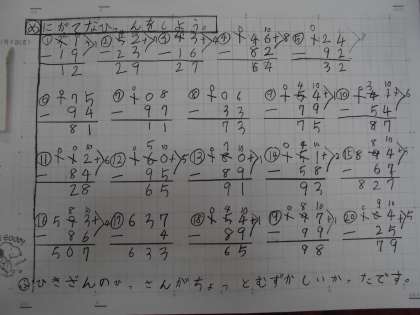 め にがてなひっさんをしよう。
① ② ③ ④ ⑤ 124
-19 -23 -16 -82 -92
12 29 27 64 32
⑥ 175 ⑦ 108 ⑧ 106 ⑨ 154 ⑩
-94 -97 -33 -79 -54
81 11 73 75 87
⑪ 112 ⑫ 160 ⑬ 180 ⑭ 151 ⑮ 894
-84 -95 -89 -58 -67
28 65 91 93 827
⑯ 593 ⑰ 637 ⑱ 154 ⑲ 197 ⑳ 104
-86 -4 -89 -99 -25
507 633 65 98 79
ひきざんのひっさんがちょっとむずかしいかったです。